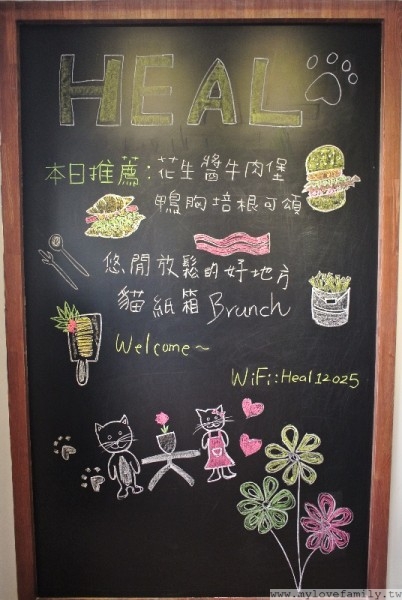 HEAL
本日推薦:花生醬牛肉堡
鴨胸培根可頌
悠閒放鬆的好地方
貓紙箱 Brunch
Welcome~
WiFi:Heal12025
www.mylovefamily.tw